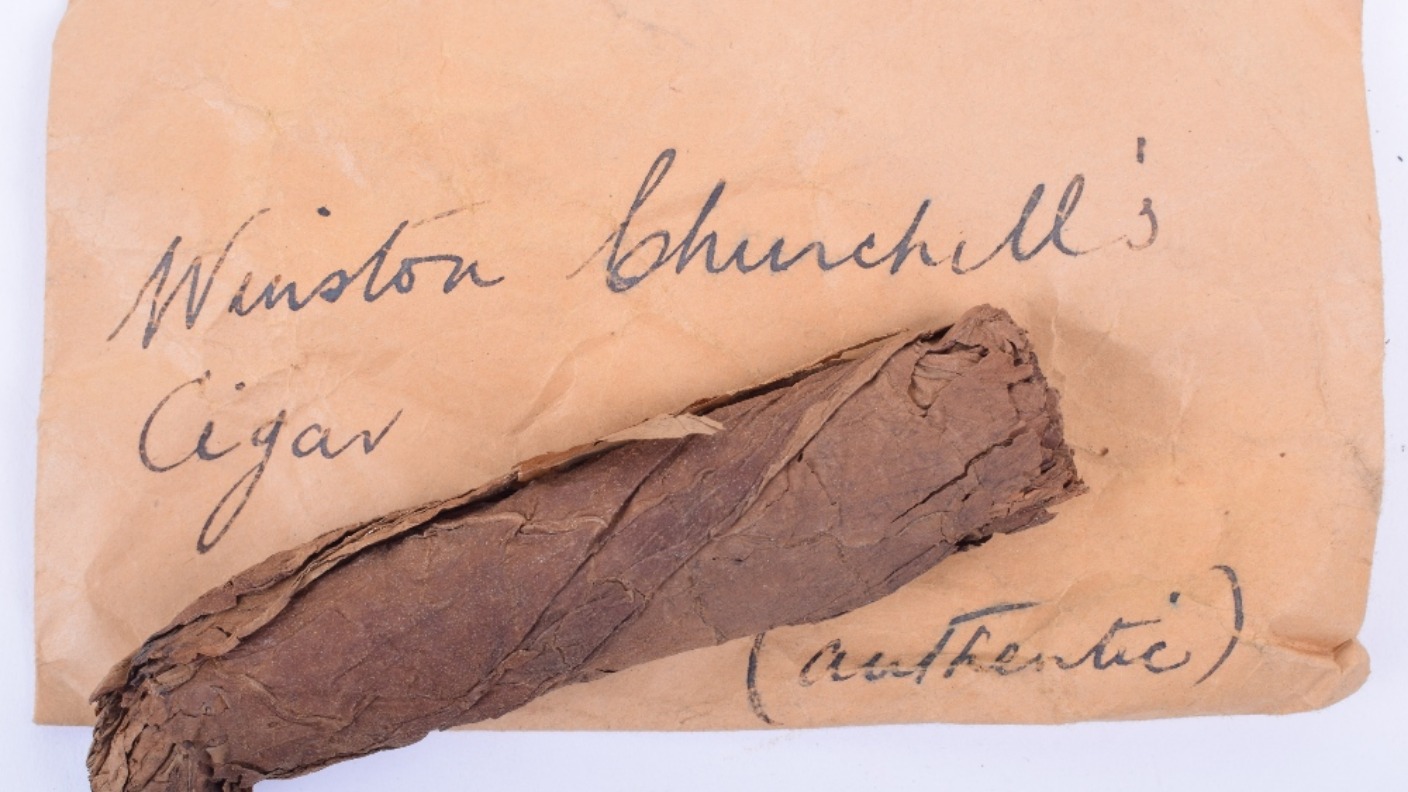 Winston Churchill's
Cigar
(authentic)